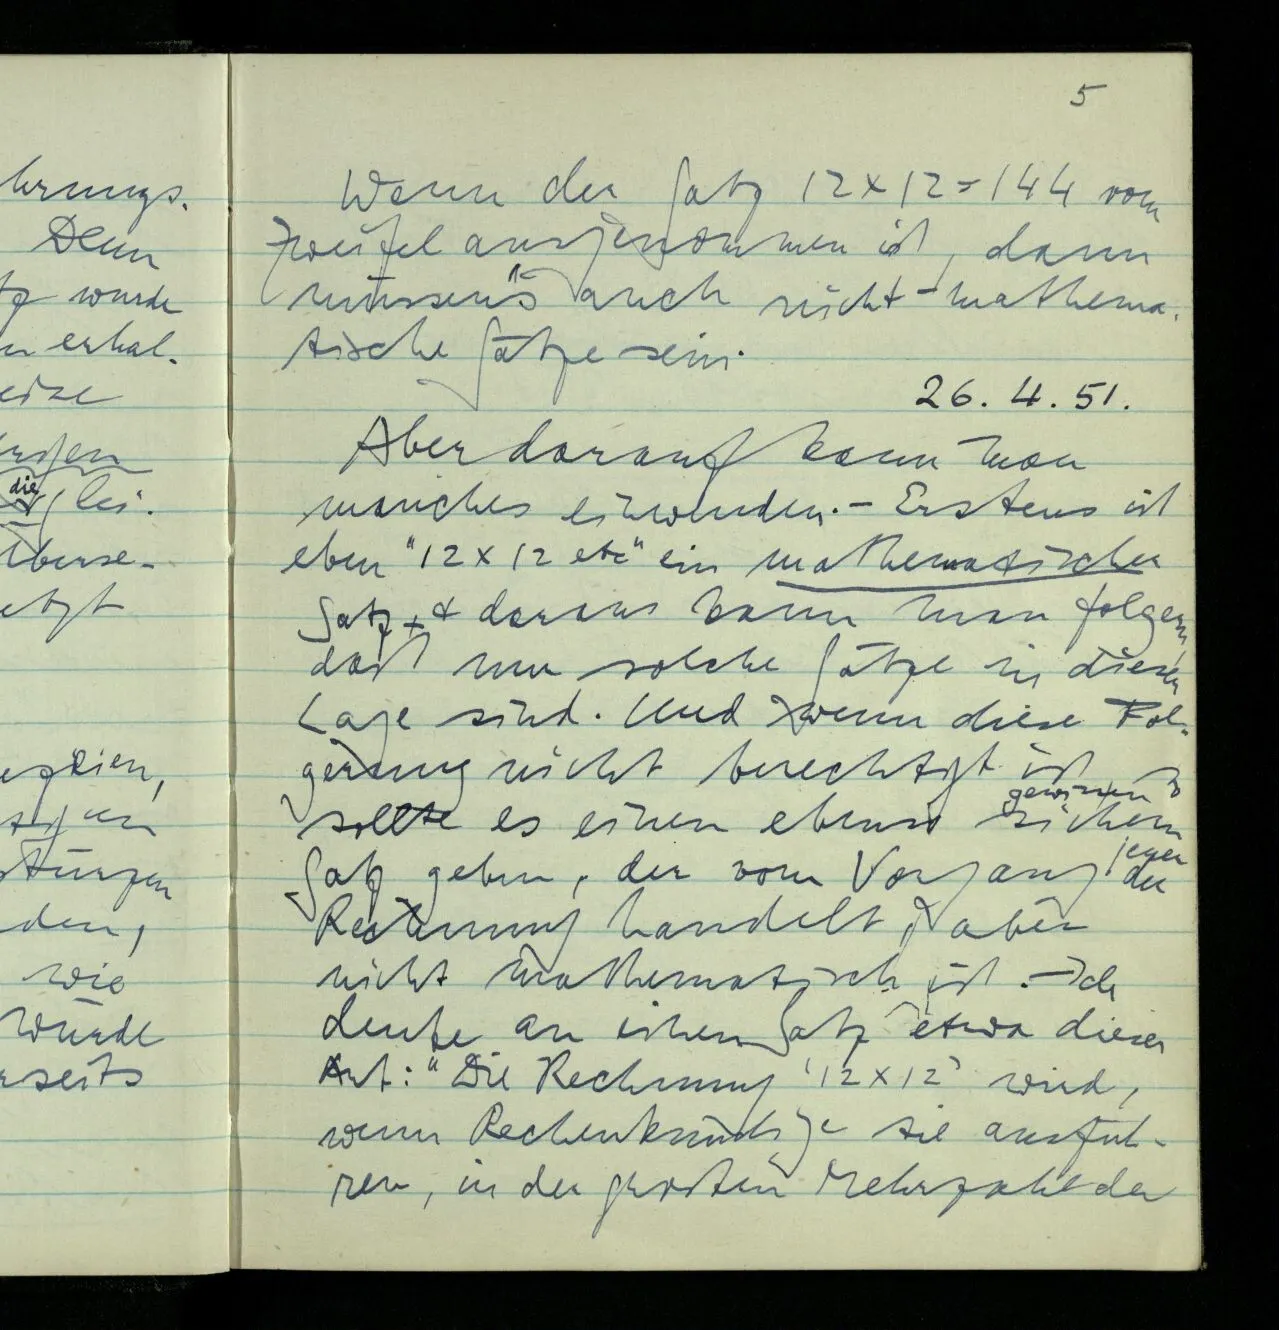 5
hrungs-
Denn
wurde
erhal-
eise
die
lei-
überse-
etzt
den,
wie
würde
rseits
Wenn der Satz 12x12=144 vom
Zweifel ausgenommen ist, dann
müssen's auch nicht-mathema-
tische Sätze sein.
26. 4. 51.
Aber darauf kann man
manches einwenden. – Erstens ist
eben "12x12 etc" ein mathematischer
Satz, & daraus kann man folgern,
daß nur solche Sätze in dieser
Lage sind. Und wenn diese Fol-
gerung nicht berechtigt ist, so
sollte es einen ebenso gewissen
Satz geben, der vom Vorgang jener
Rechnung handelt, aber
nicht mathematisch ist. – Ich
denke an einen Satz etwa dieser
Art: "Die Rechnung '12x12' wird,
wenn Rechenkundige sie ausfüh-
ren, in der großen Mehrzahl der